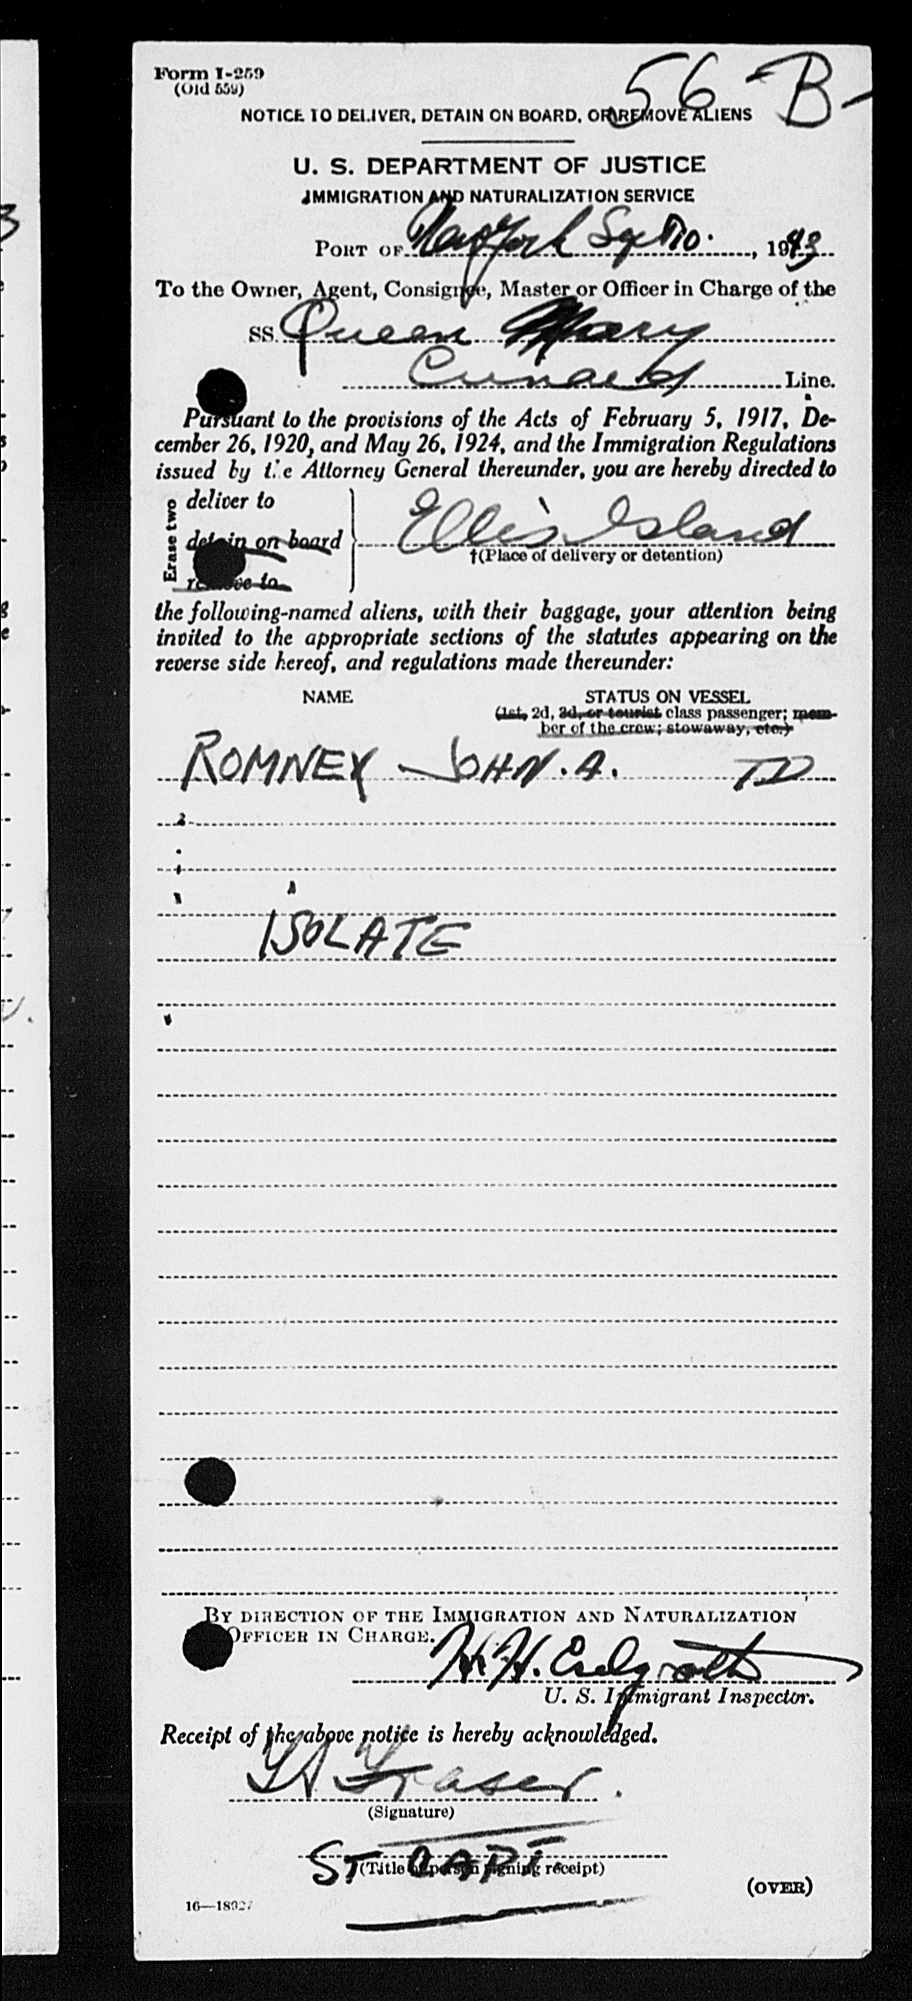 Form I-259
(Old 559)
56-B-
NOTICE TO DELIVER, DETAIN ON BOARD, OR REMOVE ALIENS
U. S. DEPARTMENT OF JUSTICE
IMMIGRATION AND NATURALIZATION SERVICE
PORT OF New York Sept 10. , 1943
To the Owner, Agent, Consignee, Master or Officer in Charge of the
SS Queen Mary
Cunard Line.
Pursuant to the provisions of the Acts of February 5, 1917, De-
cember 26, 1920, and May 26, 1924, and the Immigration Regulations
issued by the Attorney General thereunder, you are hereby directed to
Erase two
deliver to
detain on board
remove to
Ellis Island
†(Place of delivery or detention)
the following-named aliens, with their baggage, your attention being
invited to the appropriate sections of the statutes appearing on the
reverse side hereof, and regulations made thereunder:
NAME STATUS ON VESSEL
(1st, 2d, 3d, or tourist class passenger; mem-
ber of the crew; stowaway, etc.)
ROMNEY - JOHN. A. TD
ISOLATE
BY DIRECTION OF THE IMMIGRATION AND NATURALIZATION
OFFICER IN CHARGE.
H. H.
U. S. Immigrant Inspector.
Receipt of the above notice is hereby acknowledged.
Fraser.
(Signature)
ST CAPT
(Title of person signing receipt)
(OVER)